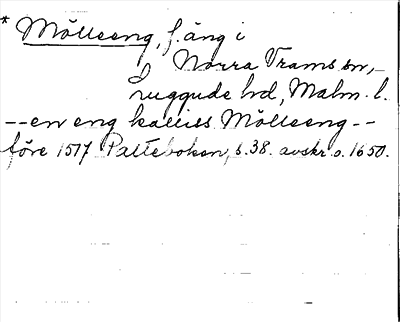 * Mölleeng, f. äng i
Norra Vrams sn,
Luggude hd, Malm. l.
--en eng kalliss Mölleeng--
före 1517 Palteboken, s. 38. avskr. o. 1650.